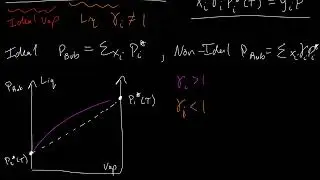 Ideal Vap Liq γᵢ ≠ 1
xᵢ γᵢ Pᵢ* = yᵢ P
Ideal P_Bub = Σ xᵢ Pᵢ* , Non-Ideal P_Bub = Σ xᵢ γᵢ Pᵢ*
P_Bub Liq
γᵢ > 1
Pᵢ*(T)
γᵢ < 1
Pᵢ*(T)
Vap